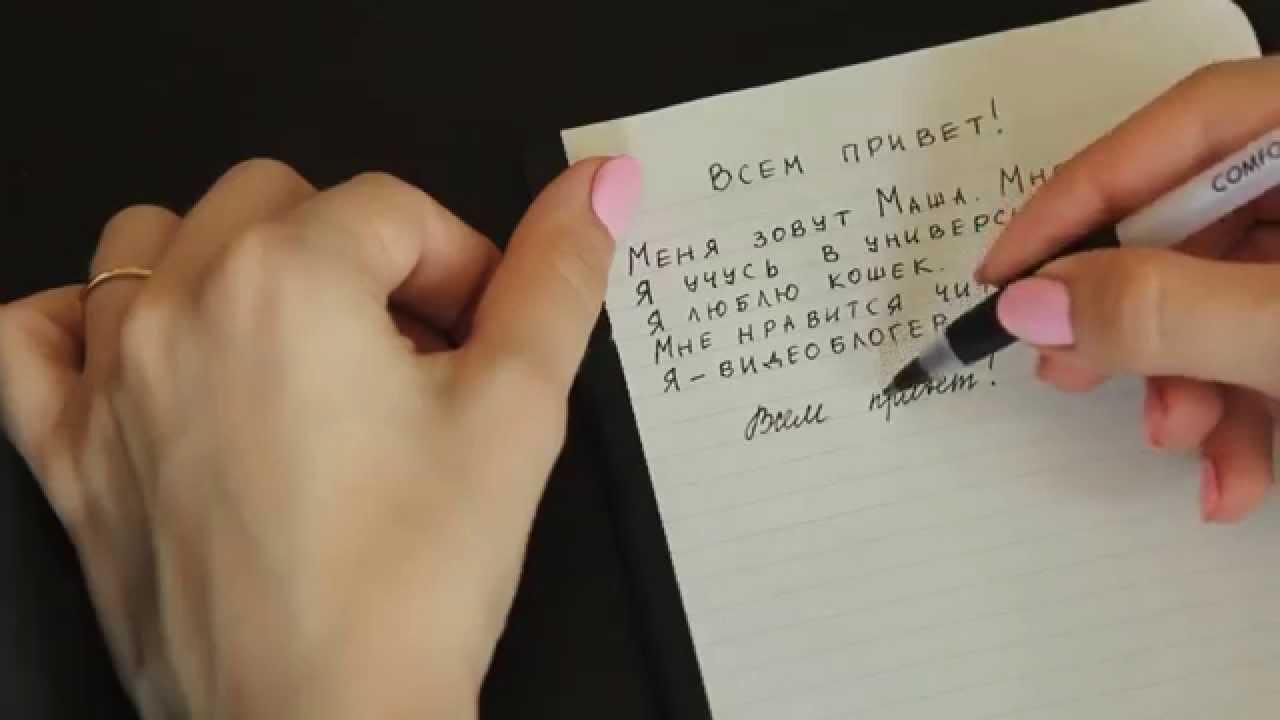 Всем привет!
Меня зовут Маша.
Я учусь в
Я люблю кошек.
Мне нравится
Я – видеоблогер
Всем привет!
COMFO